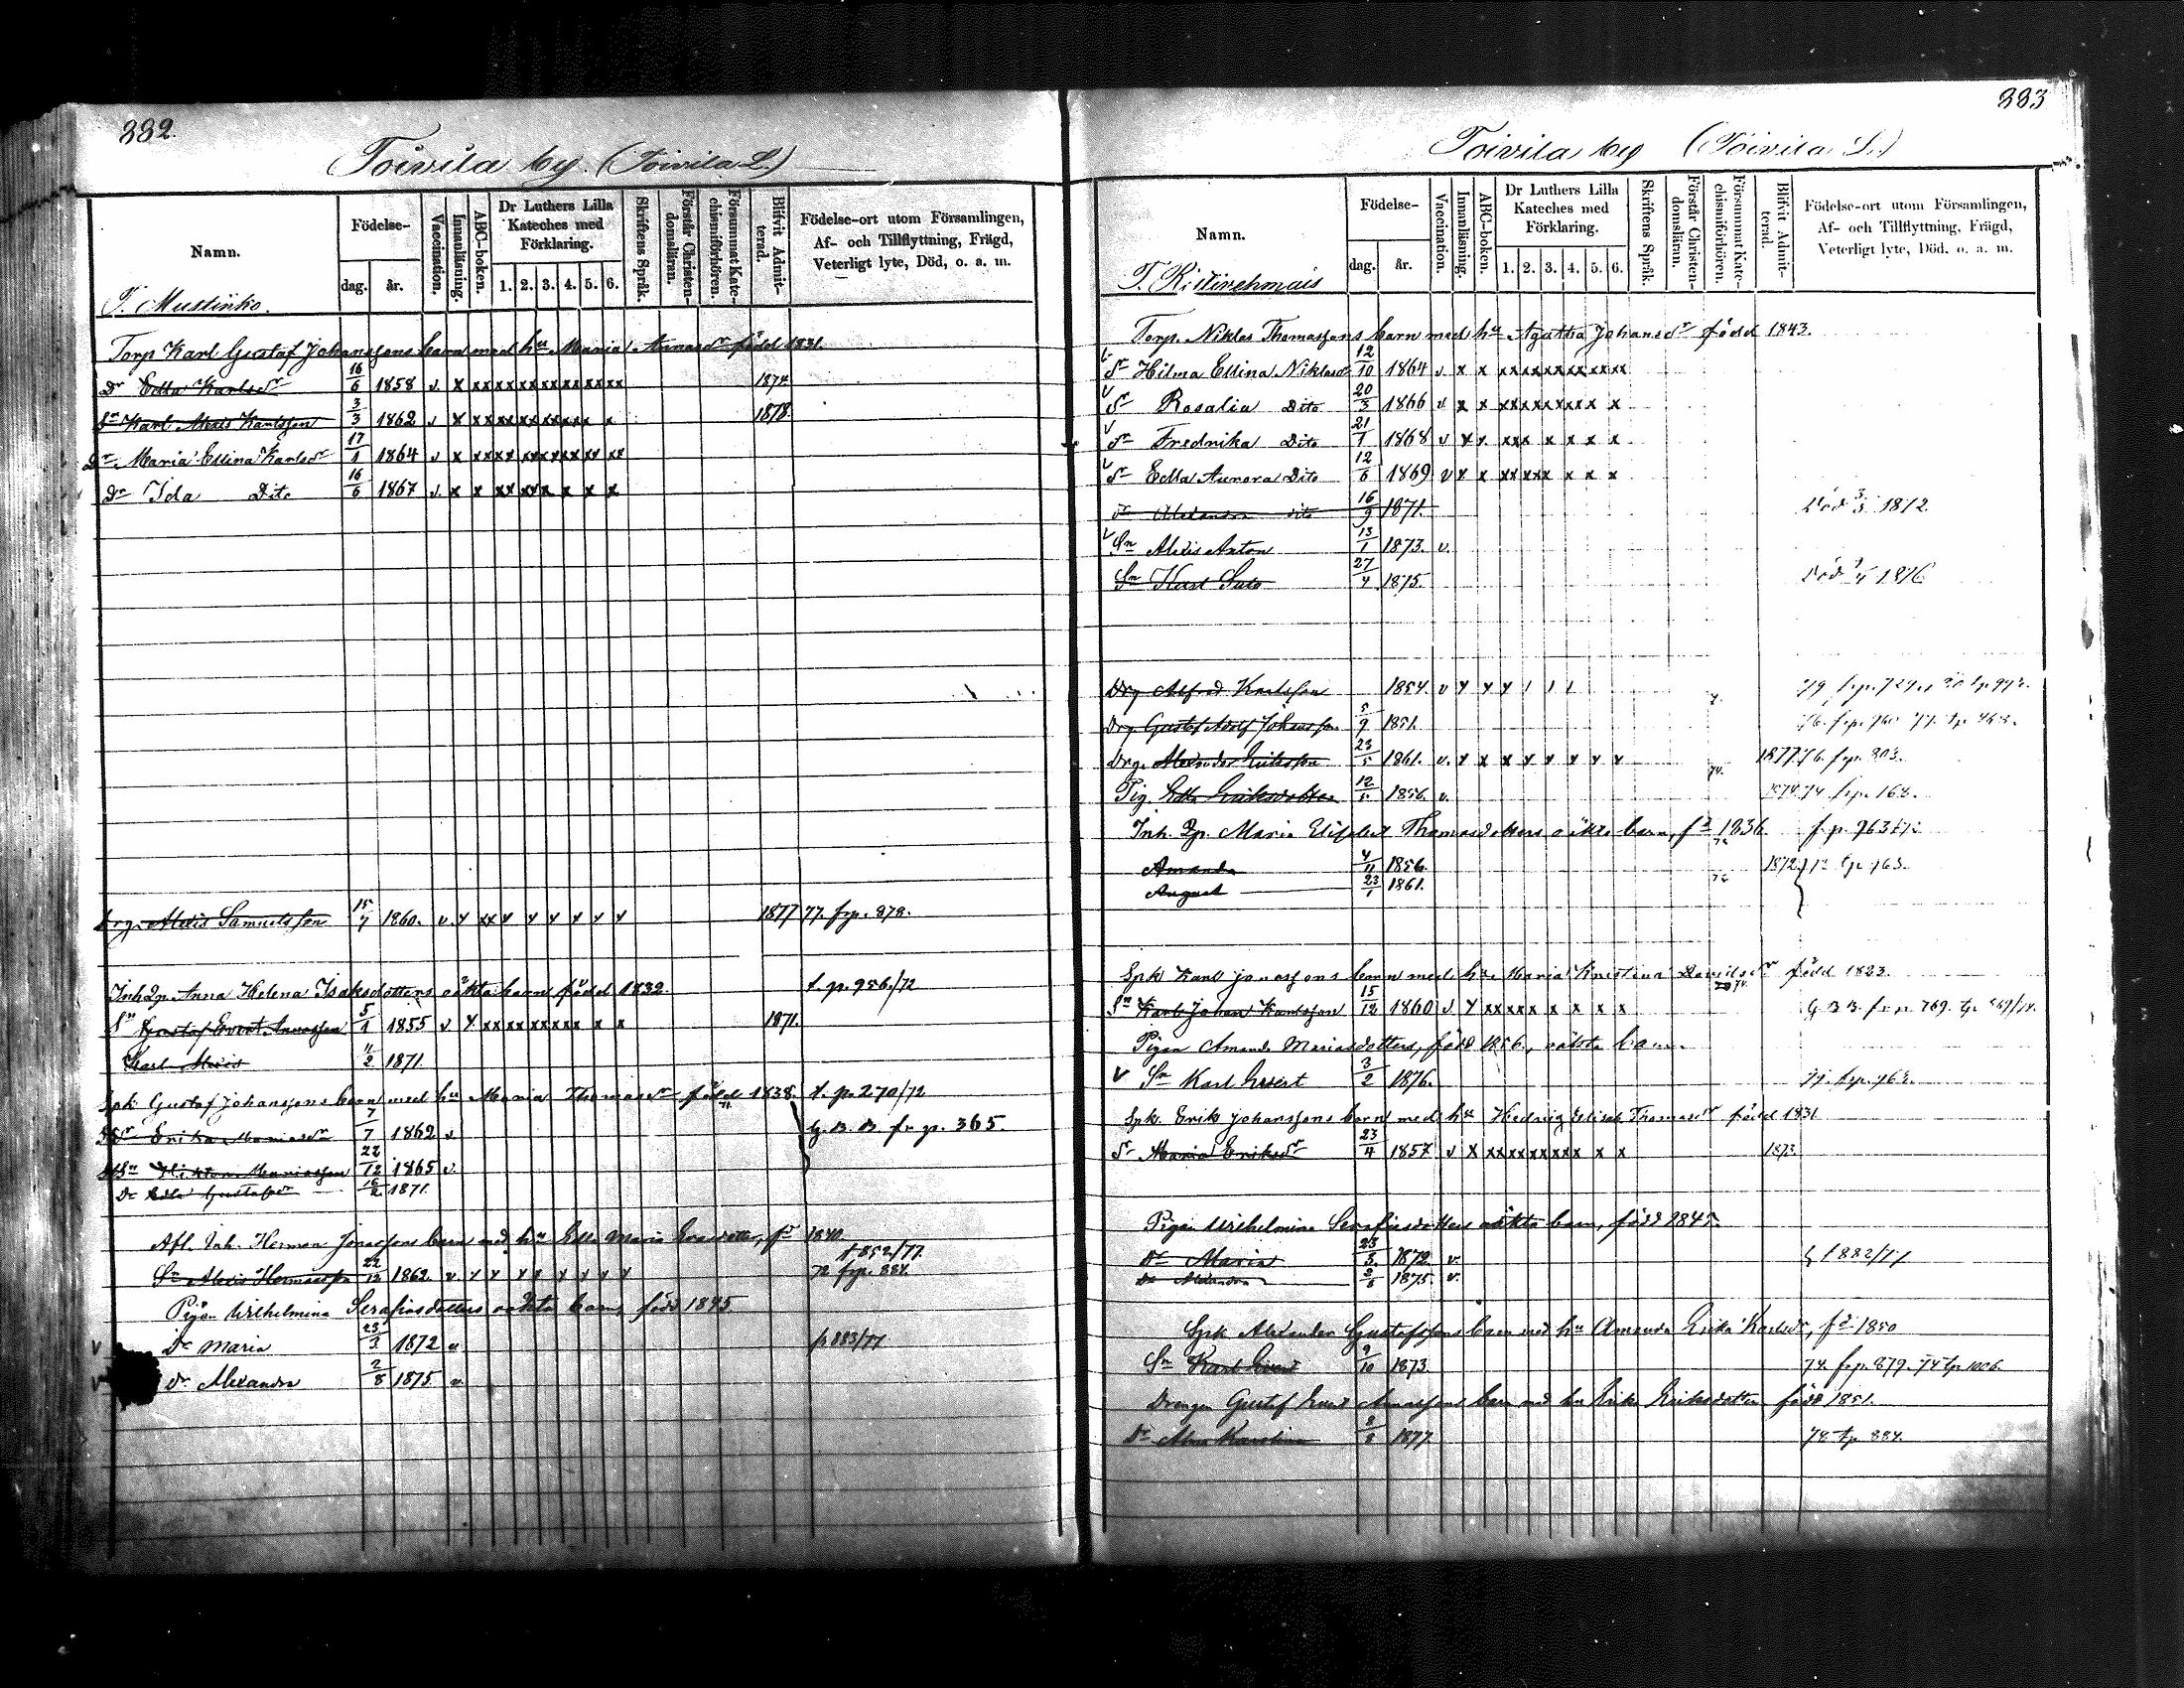 882.
Toivila by. (Toivila L.)
Namn.
Födelse-
dag.
år.
Vaccination.
Innanläsning.
ABC-boken.
Dr Luthers Lilla Kateches med Förklaring.
1. 2. 3. 4. 5. 6.
Skriftens Språk.
Förstår Christendomsläran.
Försummat Katechismiförhören.
Blifvit Admitterad.
Födelse-ort utom Församlingen, Af- och Tillflyttning, Frägd, Veterligt lyte, Död, o. a. m.
T. Mustinko.
Torp Karl Gustaf Johanssons barn med hu Maria Annasdr född 1831.
Dr Edla Karlsdr 16/6 1858 v. x xx xx xx xx xx xx xx 1874
Sn Karl Alexis Karlsson 3/3 1862 v x xx xx xx xx xx x 1878
Dr Maria Elina Karlsdr 17/1 1864 v x xx xx xx xx xx xx
Dr Ida Dito 16/6 1867 v. x x xx xx x x x x
Drg. Alexis Samuelsson 15/7 1860. v. x xx x x x x x x 1877 77. frp. 878.
Inh Qp. Anna Helena Isaksdotters oäkta barn född 1832. t. p. 956./72
Sn Gustaf Evert Annasson 5/1 1855 v x xx xx xx xx x x 1871.
Karl Alexis 11/2 1871.
Spk Gustaf Johanssons barn med hu Maria Thomasdr född 1838. t. p. 270/72
Dr Erika Mariasdr 7/7 1862 v G. B. B fr p. 365.
Sn Viktor Mariasson 22/12 1865 v.
Dr Edla Gustafsdr 16/2 1871.
Afl. Inh. Herman Jonassons barn med hu Edla Maria Evasdotter, fd 1840. t 852/77.
Sn Alexis Hermansson 22/12 1862. v x x x x x x x x 72 frp. 884.
Pigan Wilhelmina Serafiasdotters oäkta barn, född 1845
v Dr Maria 23/3 1872 v p 883/77
v Dr Alexandra 2/8 1875. v.
883
Toivila by (Toivila L.)
Namn.
Födelse-
dag.
år.
Vaccination.
Innanläsning.
ABC-boken.
Dr Luthers Lilla Kateches med Förklaring.
1. 2. 3. 4. 5. 6.
Skriftens Språk.
Förstår Christendomsläran.
Försummat Katechismiförhören.
Blifvit Admitterad.
Födelse-ort utom Församlingen, Af- och Tillflyttning, Frägd, Veterligt lyte, Död. o. a. m.
T. Ristirehmais
Torp. Niklas Thomassons barn med hu Agatha Johansdr född 1843.
Dr Hilma Elina Niklasdr 12/10 1864 v x x xx xx xx xx xx xx
Dr Rosalia Dito 20/3 1866 v x x xx xx xx xx x x
Dr Fredrika Dito 21/1 1868 v x x. xx x x x x x
Dr Edla Aurora Dito 12/6 1869 v x x xx xx x x x x
Dr Alexandra dito 16/9 1871. Död 3/3 1872.
Sn Alexis Anton 13/1 1873. v.
Sn Karl 27/4 1875. Död 1876
Drg Alfred Karlsson 1854 v x x x 79 frp. 729.
Drg Gustaf Adolf Johansson 5/9 1851. 76. frp. 77. tp 463.
Drg. Alexander Eriksson 23/5 1861. v. x x x x x x x x 1877. 76. frp. 803.
Pig. Edla Eriksdotter 12/5 1856. v. 1874. 74. frp. 163.
Inh. Qp. Maria Elisabet Thomasdotters oäkta barn, fd 1836 f. p. 963/72
Amanda 4/11 1856. 1872. 72 tp 963.
August 23/1 1861.
Spk Karl Jonassons barn med hu Maria Kristina Davidsdr född 1823.
Sn Karl Johan Karlsson 15/12 1860 v x xx xx x x x x G. B B. fr p. 769.
Pigan Amanda Mariasdotters, född 1856, oäkta barn.
v Sn Karl Evert 3/2 1876. 77. frp. 963.
Spk. Erik Johanssons barn med hu Hedvig Elisab Thomasdr född 1831
Dr Maria Eriksdr 23/4 1857 v x xx xx xx xx x x 1873
Pigan Wilhelmina Serafiasdotters oäkta barn, född 1845.
Dr Maria 23/3. 1872. v. t 882/77
Dr Alexandra 2/8 1875. v.
Spk Alexander Gustafssons barn med hu Amanda Erika Karlsdr, fd 1850
Sn Karl Evert 9/10 1873 74. frp. 879. 74 tp. 1006.
Drengen Gustaf Evert Annassons barn med hu Erika Eriksdotter född 1851.
Dr Alma Karolina 8/8 1877. 78 tp 884.